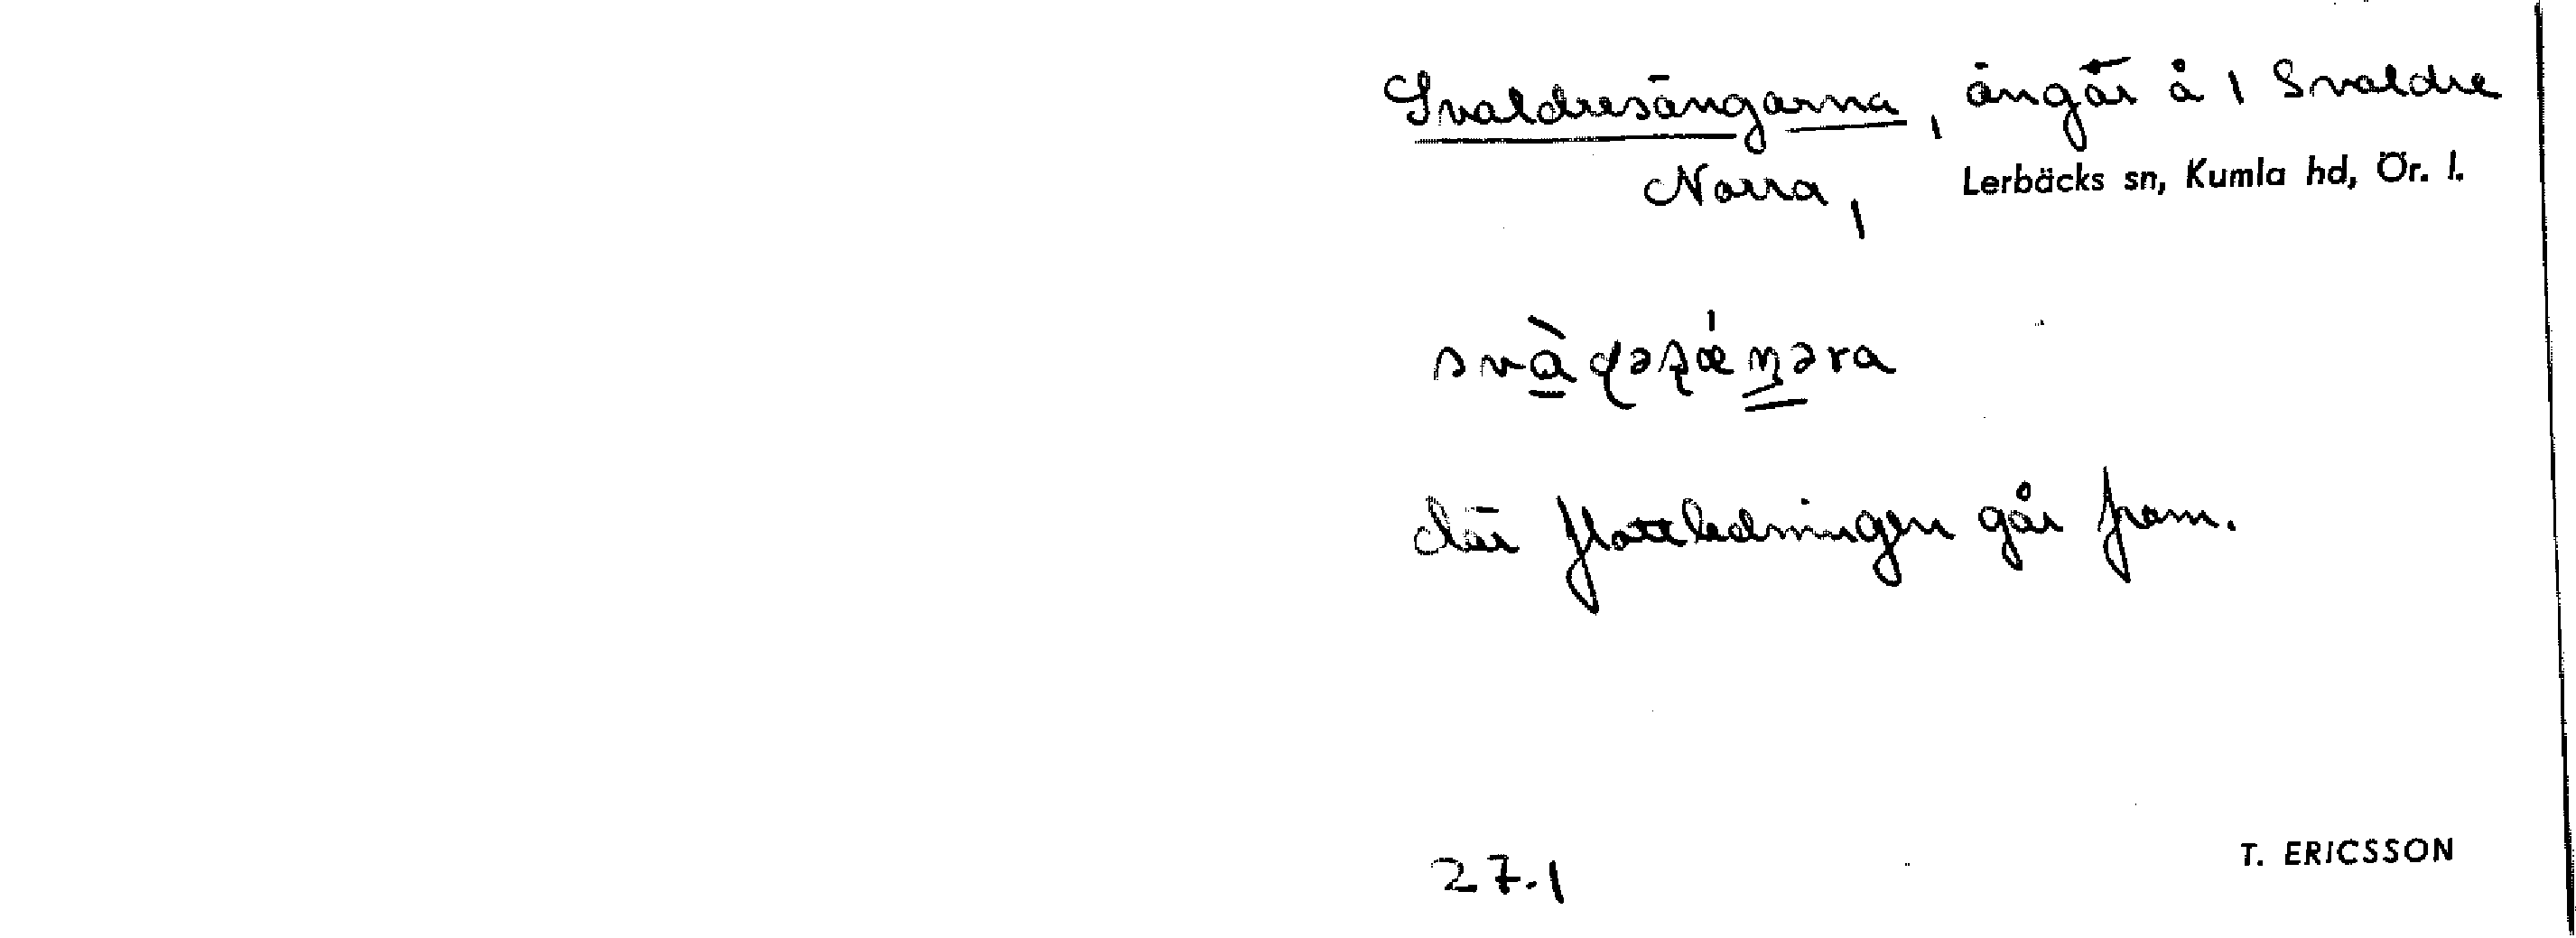 Svaldresängarna, ängar å 1 Svaldre
Norra, Lerbäcks sn, Kumla hd, Ör. l.
där flottledningen går fram.
27.1
T. ERICSSON